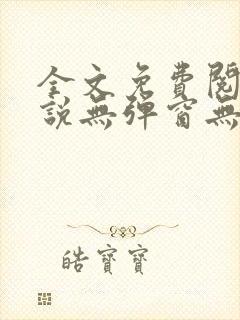 全文免費閱
說無彈窗無
皓寶寶